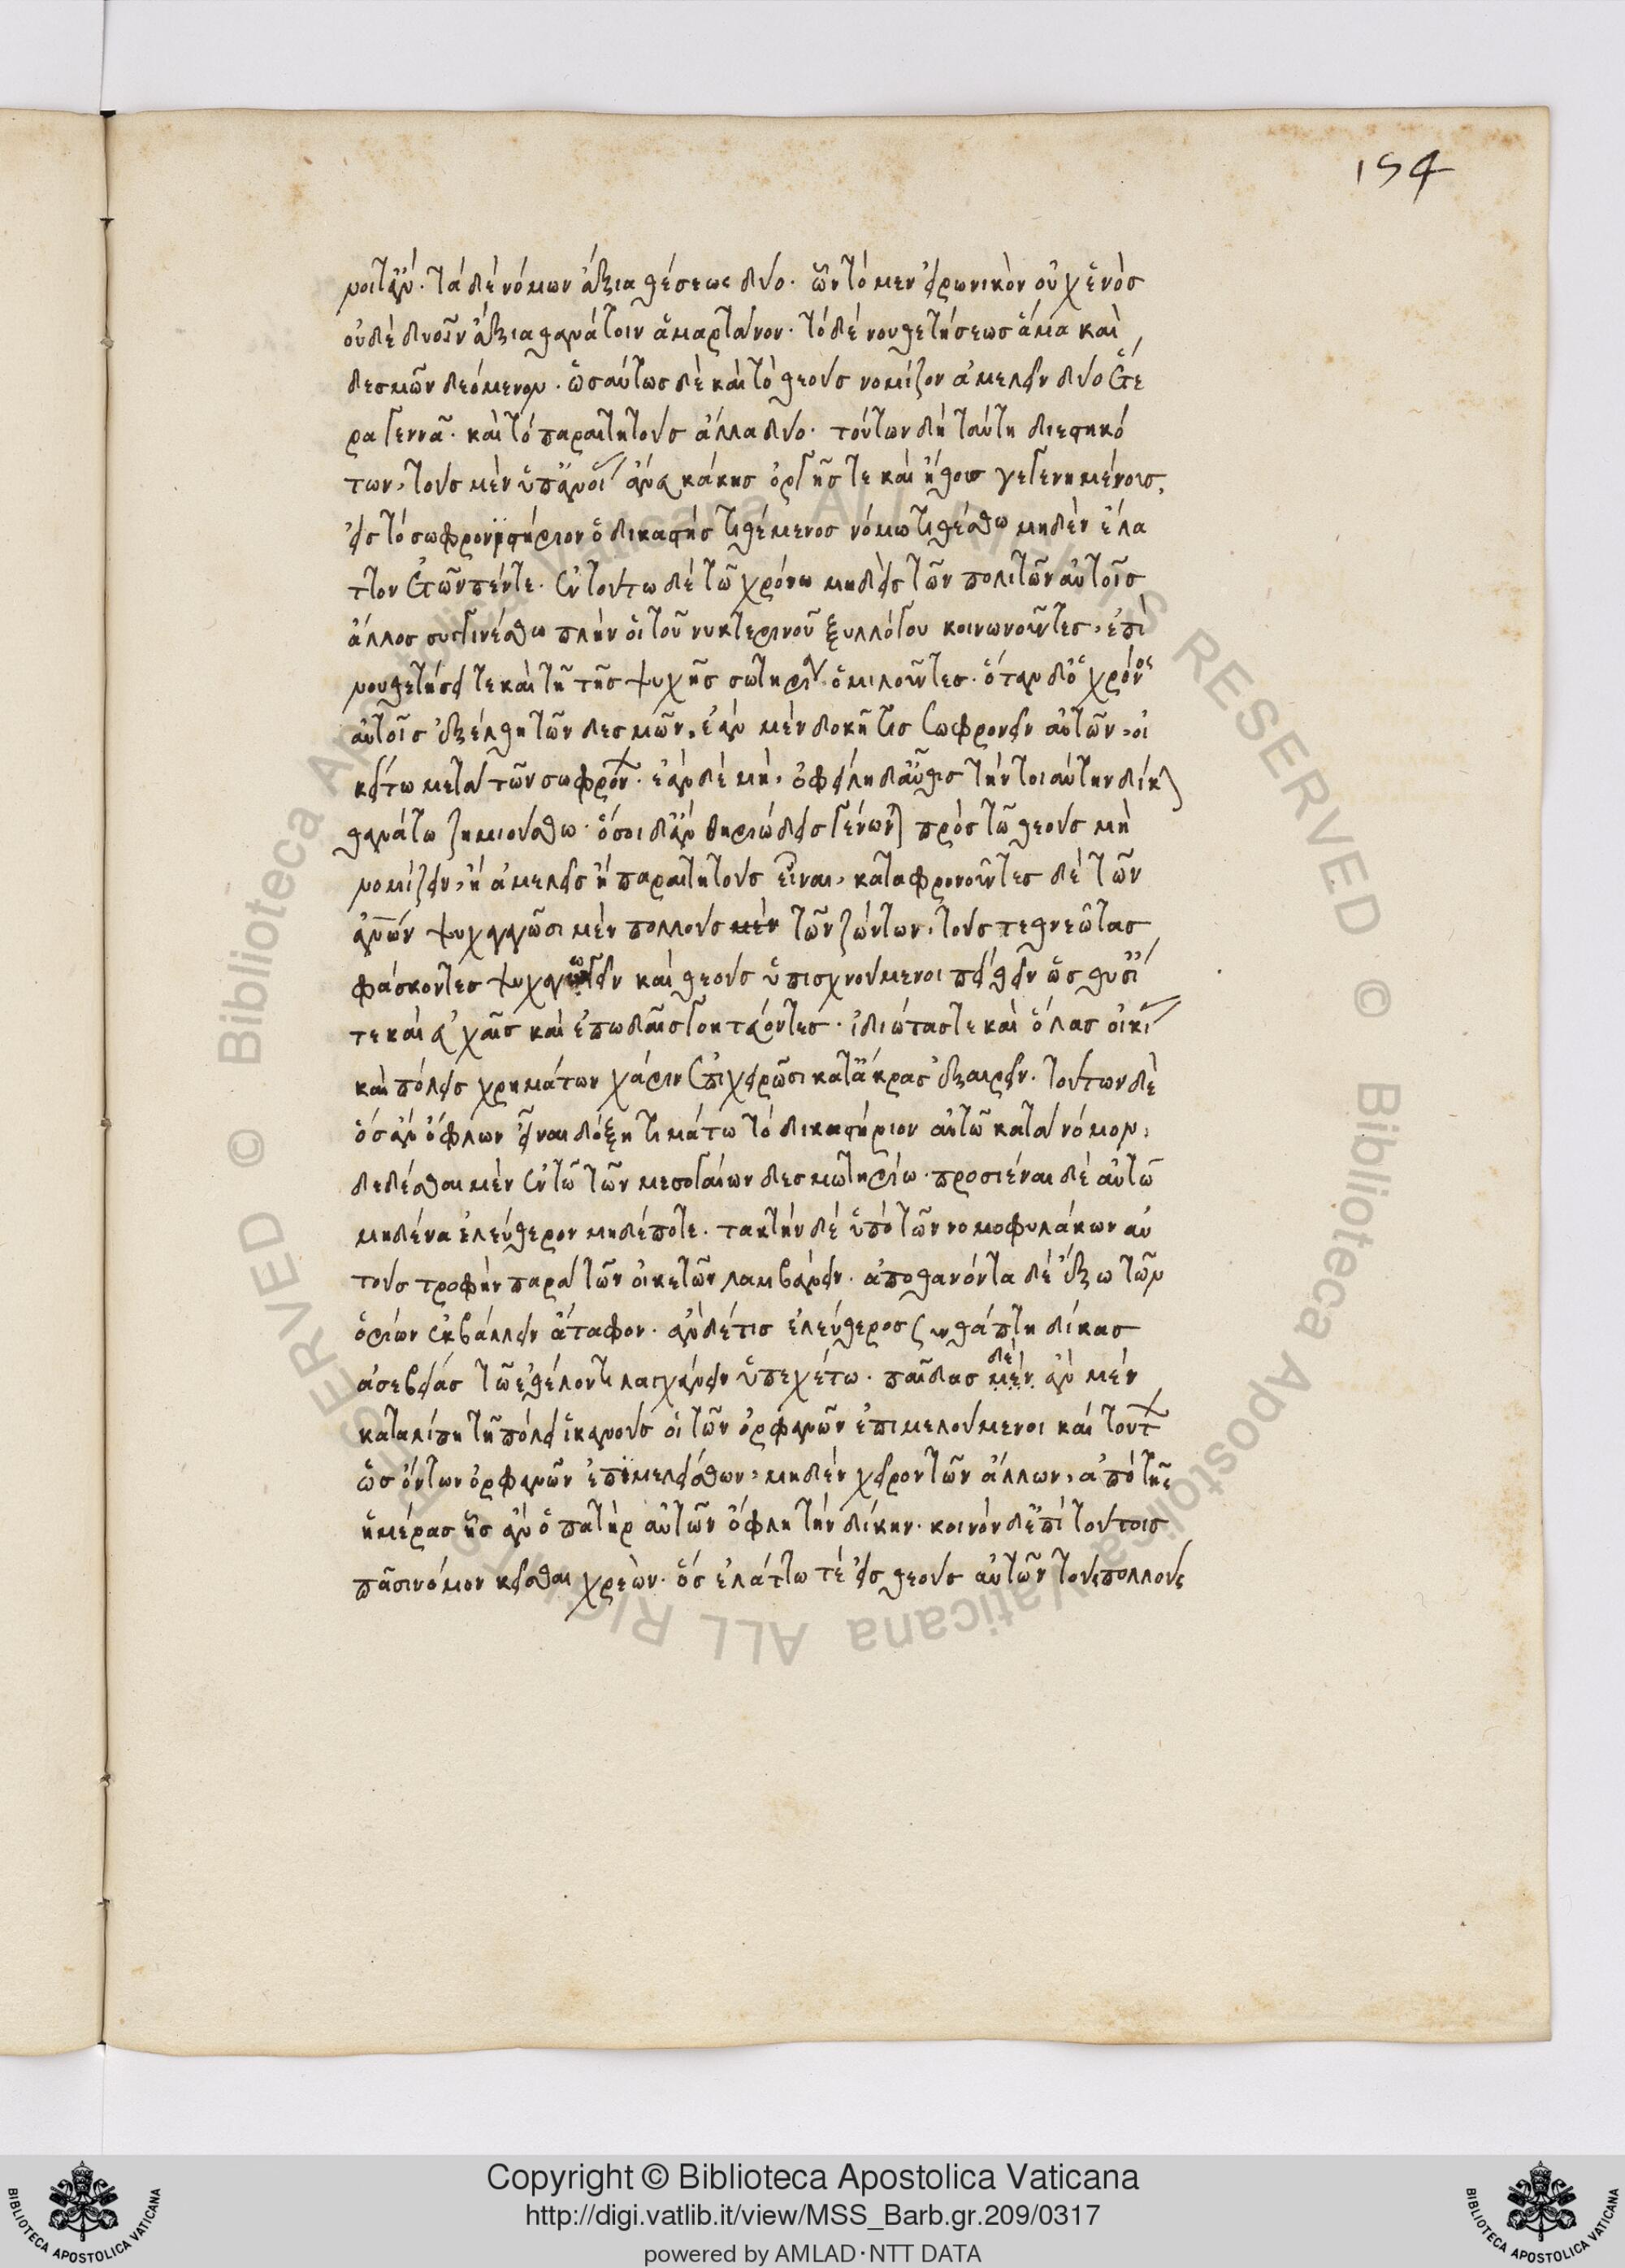 154
νοιτ' ἄν. τὰ δὲ νόμων ἄξια θέσεως δύο. ὧν τὸ μὲν εἰρωνικὸν οὐχ ἑνὸς
οὐδὲ δυοῖν ἄξια θανάτοιν ἁμαρτάνον. τὸ δὲ νουθετήσεως ἅμα καὶ
δεσμῶν δεόμενον. ὡσαύτως δὲ καὶ τὸ θεοὺς νομίζον ἀμελεῖν δύο ἕτε
ρα γεννᾶ. καὶ τὸ παραιτητοὺς ἄλλα δύο. τούτων δὴ ταύτη διεστηκό
των, τοὺς μὲν ὑπ' ἀνοίας ἄνευ κάκης ὀργῆς τε καὶ ἤθους γεγενημένους,
εἰς τὸ σωφρονιστήριον ὁ δικαστὴς τιθέμενος νόμω τιθέσθω μηδὲν ἔλα
ττον ἐτῶν πέντε. ἐν τούτω δὲ τῶ χρόνω μηδεὶς τῶν πολιτῶν αὐτοῖς
ἄλλος συγγινέσθω πλὴν οἱ τοῦ νυκτερινοῦ ξυλλόγου κοινωνοῦντες, ἐπὶ
νουθετήσει τε καὶ τῆ τῆς ψυχῆς σωτηρίᾳ ὁμιλοῦντες. ὅταν δ' ὁ χρόνος
αὐτοῖς ἐξέλθη τῶν δεσμῶν, ἐὰν μὲν δοκῆ τις σωφρονεῖν αὐτῶν, οἰ
κείτω μετὰ τῶν σωφρόνων. ἐὰν δὲ μὴ, ὀφείλη δ' αὖθις τὴν τοιαύτην δίκην
θανάτω ζημιούσθω. ὅσοι δ' ἂν θηριώδεις γένωνται πρὸς τῶ θεοὺς μὴ
νομίζειν, ἢ ἀμελεῖς ἢ παραιτητοὺς εἶναι, καταφρονοῦντες δὲ τῶν
ἀνθρώπων ψυχαγωγῶσι μὲν πολλοὺς μὲν τῶν ζώντων, τοὺς τεθνεῶτας
φάσκοντες ψυχαγωγεῖν καὶ θεοὺς ὑπισχνούμενοι πείθειν ὡς θυσίαις
τε καὶ εὐχαῖς καὶ ἐπωδαῖς γοητεύοντες. ἰδιώτας τε καὶ ὅλας οἰκίας
καὶ πόλεις χρημάτων χάριν ἐπιχειρῶσι κατ' ἄκρας ἐξαιρεῖν. τούτων δὲ
ὃς ἂν ὀφλων εἶναι δόξη τιμάτω τὸ δικαστήριον αὐτῶ κατὰ νόμον,
δεδέσθαι μὲν ἐν τῶ τῶν μεσογαίων δεσμωτηρίω. προσιέναι δὲ αὐτῶ
μηδένα ἐλεύθερον μηδέποτε. τακτὴν δὲ ὑπὸ τῶν νομοφυλάκων αὐ
τοὺς τροφὴν παρὰ τῶν οἰκετῶν λαμβάνειν. ἀποθανόντα δὲ ἔξω τῶν
ὁρίων ἐκβάλλειν ἄταφον. ἂν δέ τις ἐλεύθερος συνθάπτη δίκας
ἀσεβείας τῶ ἐθέλοντι λαγχάνειν ὑπεχέτω. παῖδας μὲν δὲ ἂν μὲν
καταλίπη τῆ πόλει ἱκανοὺς οἱ τῶν ὀρφανῶν ἐπιμελούμενοι καὶ τούτων
ὡς ὄντων ὀρφανῶν ἐπιμελείσθων, μηδὲν χεῖρον τῶν ἄλλων, ἀπὸ τῆς
ἡμέρας ἧς ἂν ὁ πατὴρ αὐτῶν ὄφλη τὴν δίκην. κοινὸν δ' ἐπὶ τούτοις
πᾶσι νόμον κεῖσθαι χρεών. ὃς ἐλάττω τέ εἰς θεοὺς αὐτῶν τοὺς πολλοὺς
Copyright © Biblioteca Apostolica Vaticana
http://digi.vatlib.it/view/MSS_Barb.gr.209/0317
powered by AMLAD·NTT DATA